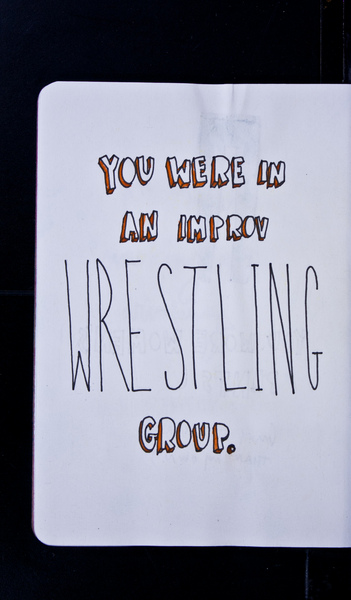 YOU WERE IN
AN IMPROV
WRESTLING
GROUP.